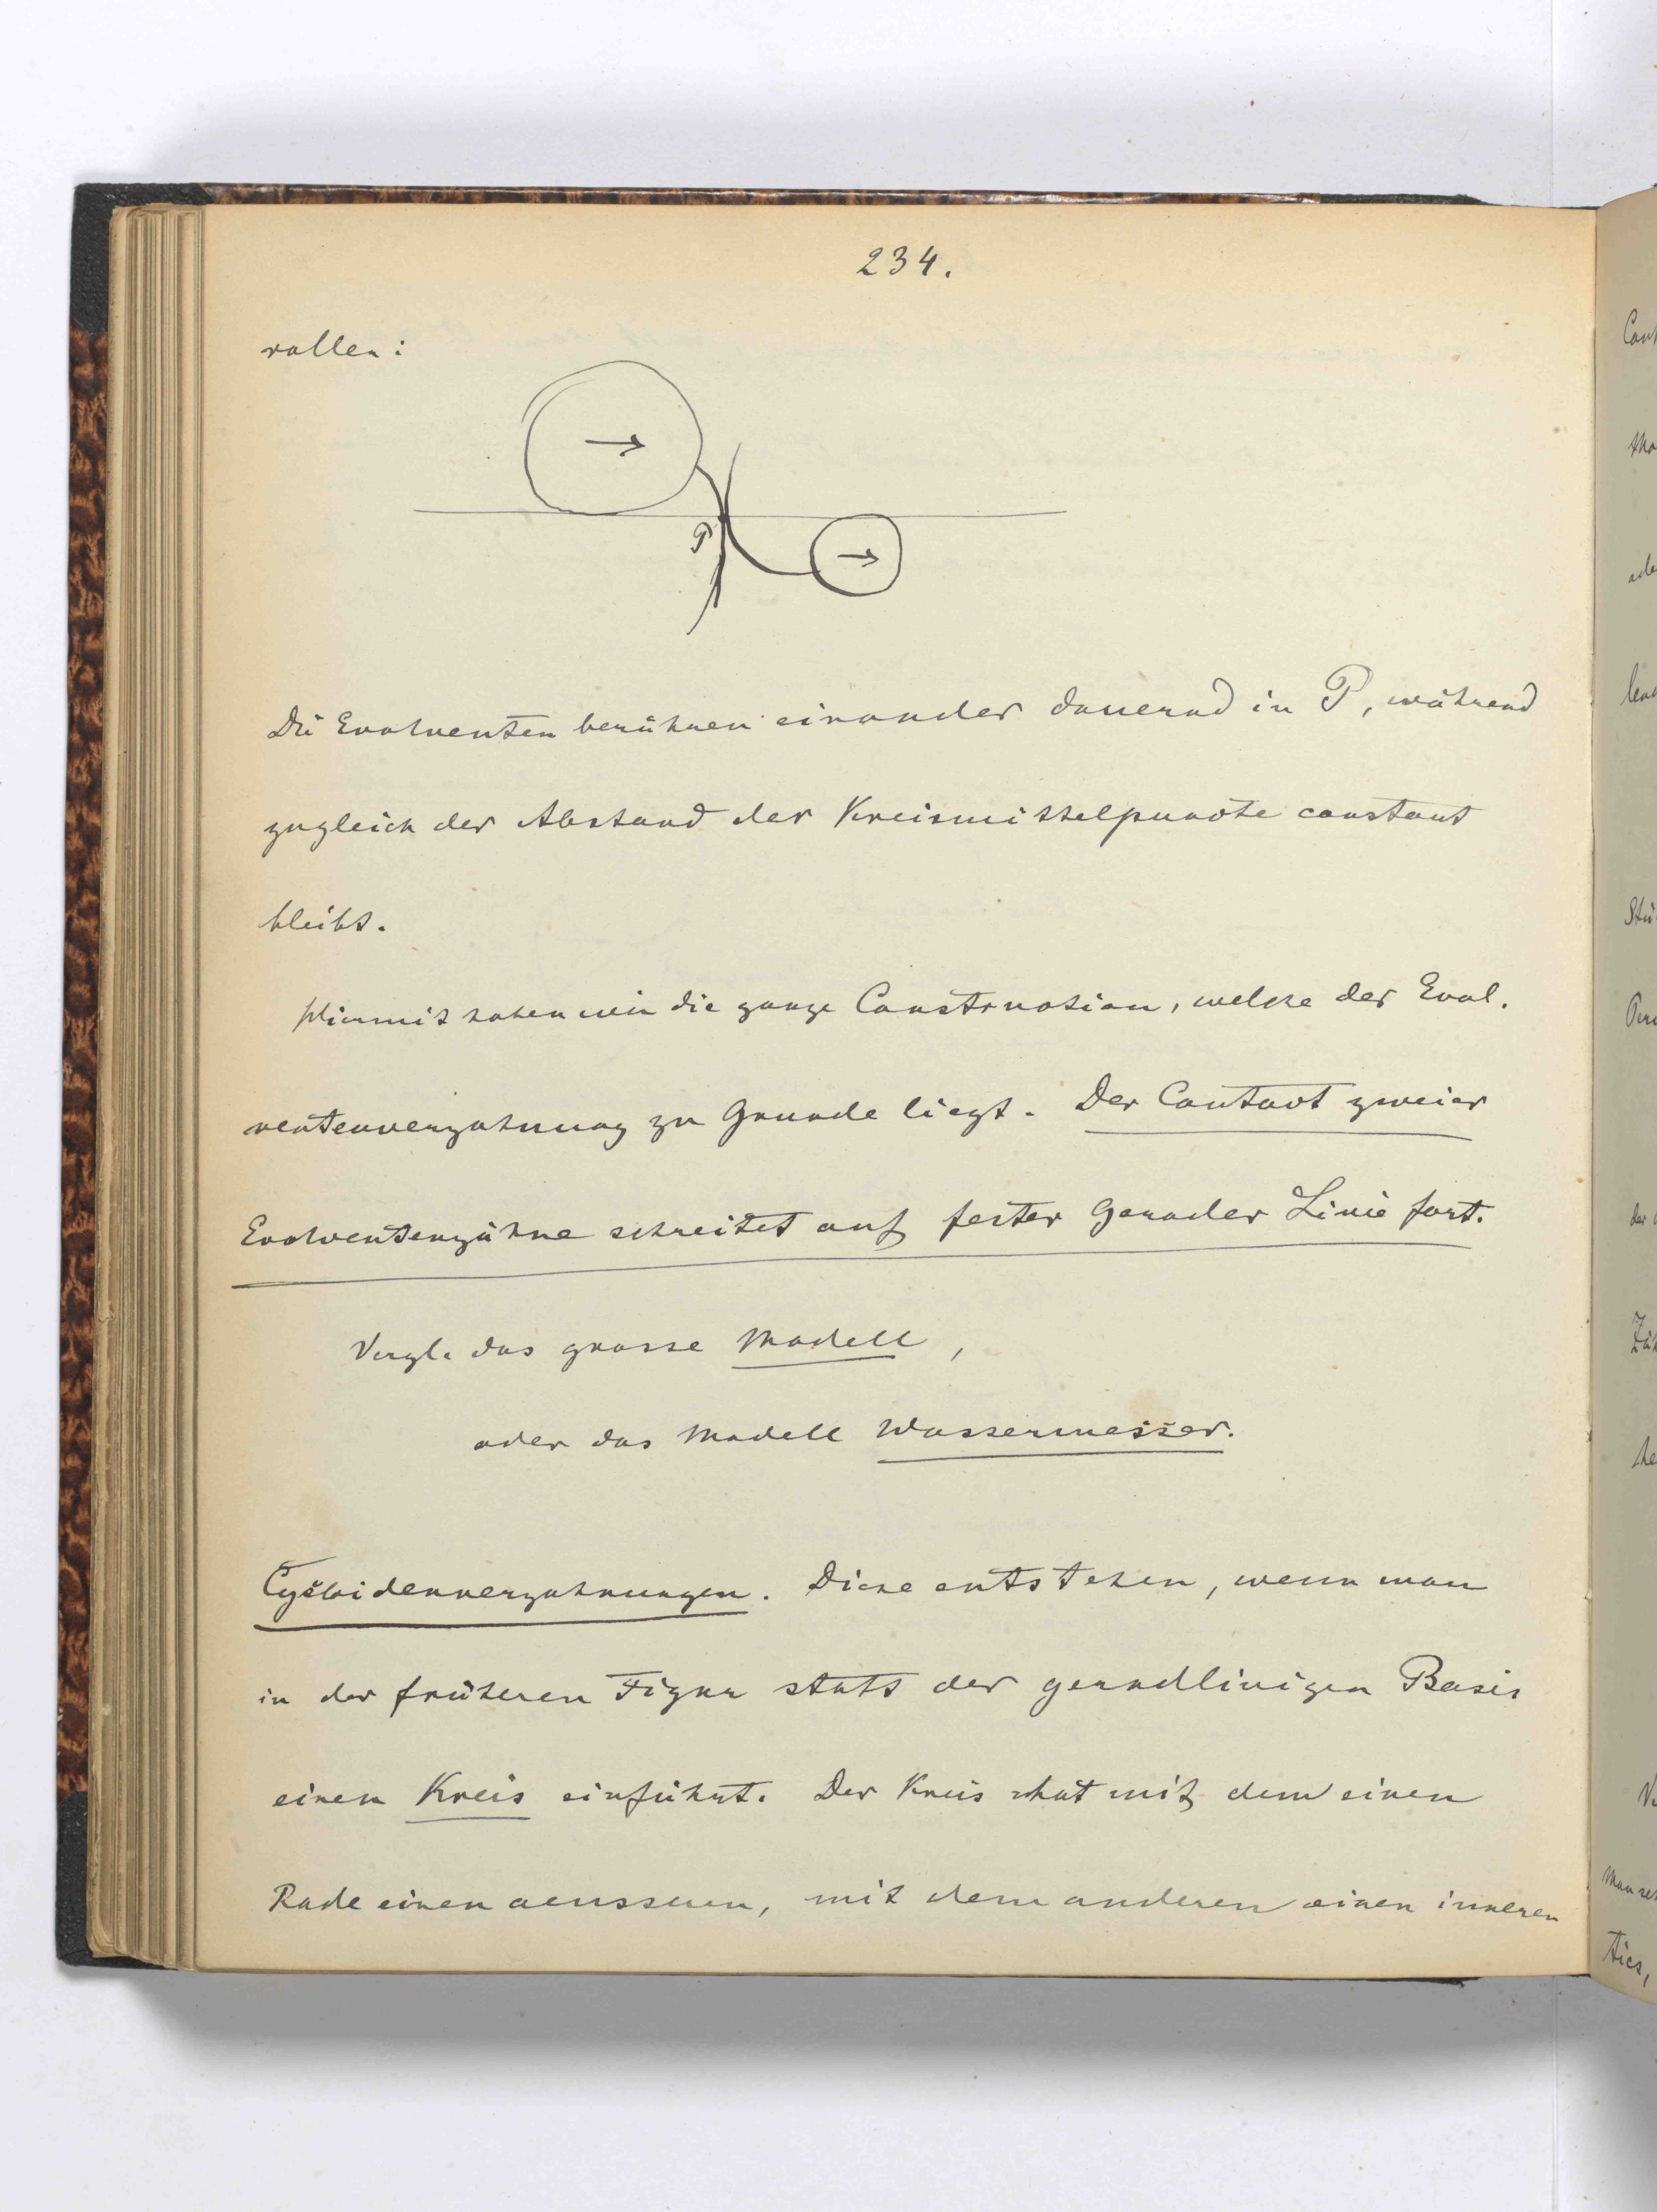 234.
rollen:
P
Die Evolventen berühren einander dauernd in P, während
zugleich der Abstand der Kreismittelpuncte constant
bleibt.
Hiermit haben wir die ganze Construction, welche der Evol-
ventenverzahnung zu Grunde liegt. Der Contact zweier
Evolventenzähne schreitet auf fester gerader Linie fort.
Vergl. das grosse Modell,
oder das Modell Wassermesser.
Cycloidenverzahnungen. Diese entstehen, wenn man
in der früheren Figur statt der geradlinigen Basis
einen Kreis einführt. Der Kreis hat mit dem einen
Rade einen aeusseren, mit dem anderen einen inneren